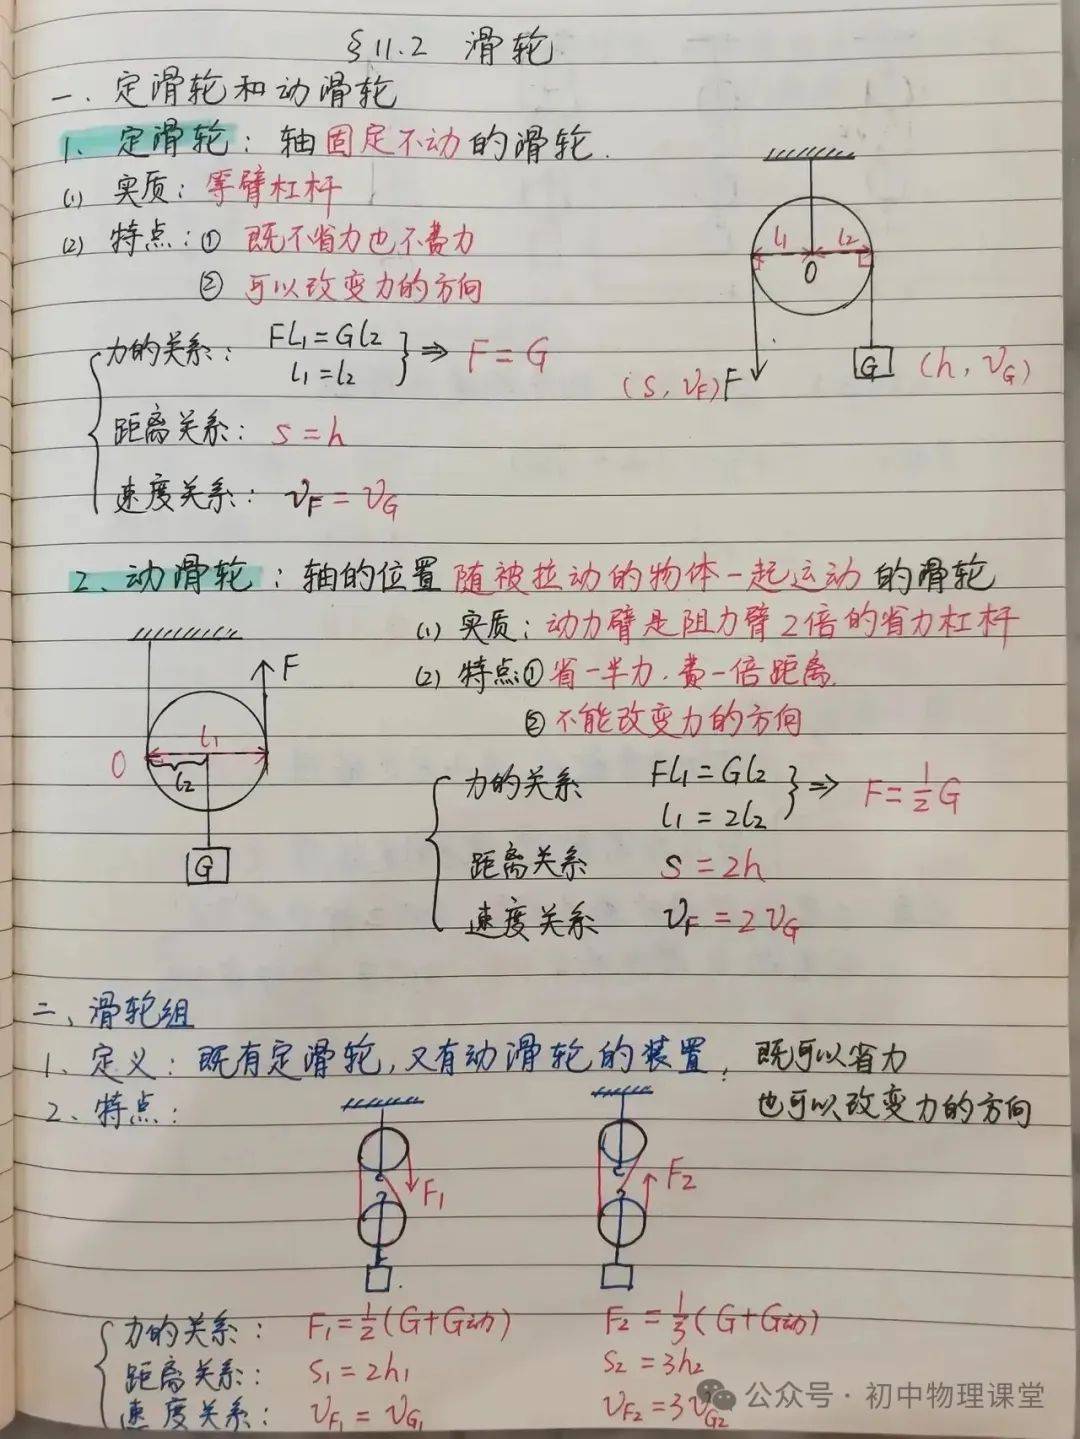 §11.2 滑轮
一、定滑轮和动滑轮
1、定滑轮：轴固定不动的滑轮.
(1) 实质：等臂杠杆
(2) 特点：① 既不省力也不费力
② 可以改变力的方向
l₁ l₂
O
力的关系：Fl₁=Gl₂
l₁=l₂ } ⇒ F=G
(s, vF) F G (h, vG)
距离关系：s=h
速度关系：vF=vG
2、动滑轮：轴的位置随被拉动的物体一起运动的滑轮
(1) 实质：动力臂是阻力臂2倍的省力杠杆
F
(2) 特点：①省一半力.费一倍距离.
②不能改变力的方向
O l₁
l₂
G
力的关系 Fl₁=Gl₂
l₁=2l₂ } ⇒ F=½G
距离关系 s=2h
速度关系 vF=2vG
二、滑轮组
1、定义：既有定滑轮,又有动滑轮的装置, 既可以省力
也可以改变力的方向
2、特点：
F₁ F₂
力的关系：F₁=½(G+G动) F₂=⅓(G+G动)
距离关系：s₁=2h₁ s₂=3h₂
速度关系：vF₁=vG₁ vF₂=3vG₂
公众号·初中物理课堂